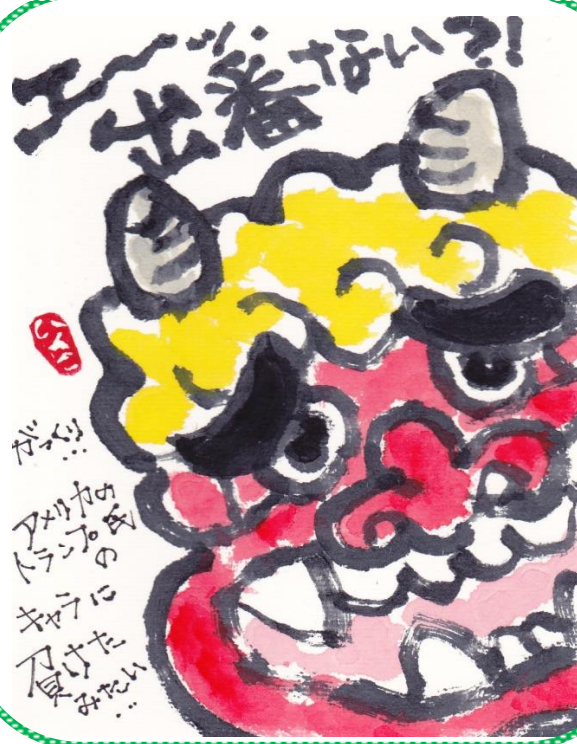 エ〜ッ、
出番ない?!
がっくり…
アメリカの
トランプ氏の
キャラに
負けた
みたい…